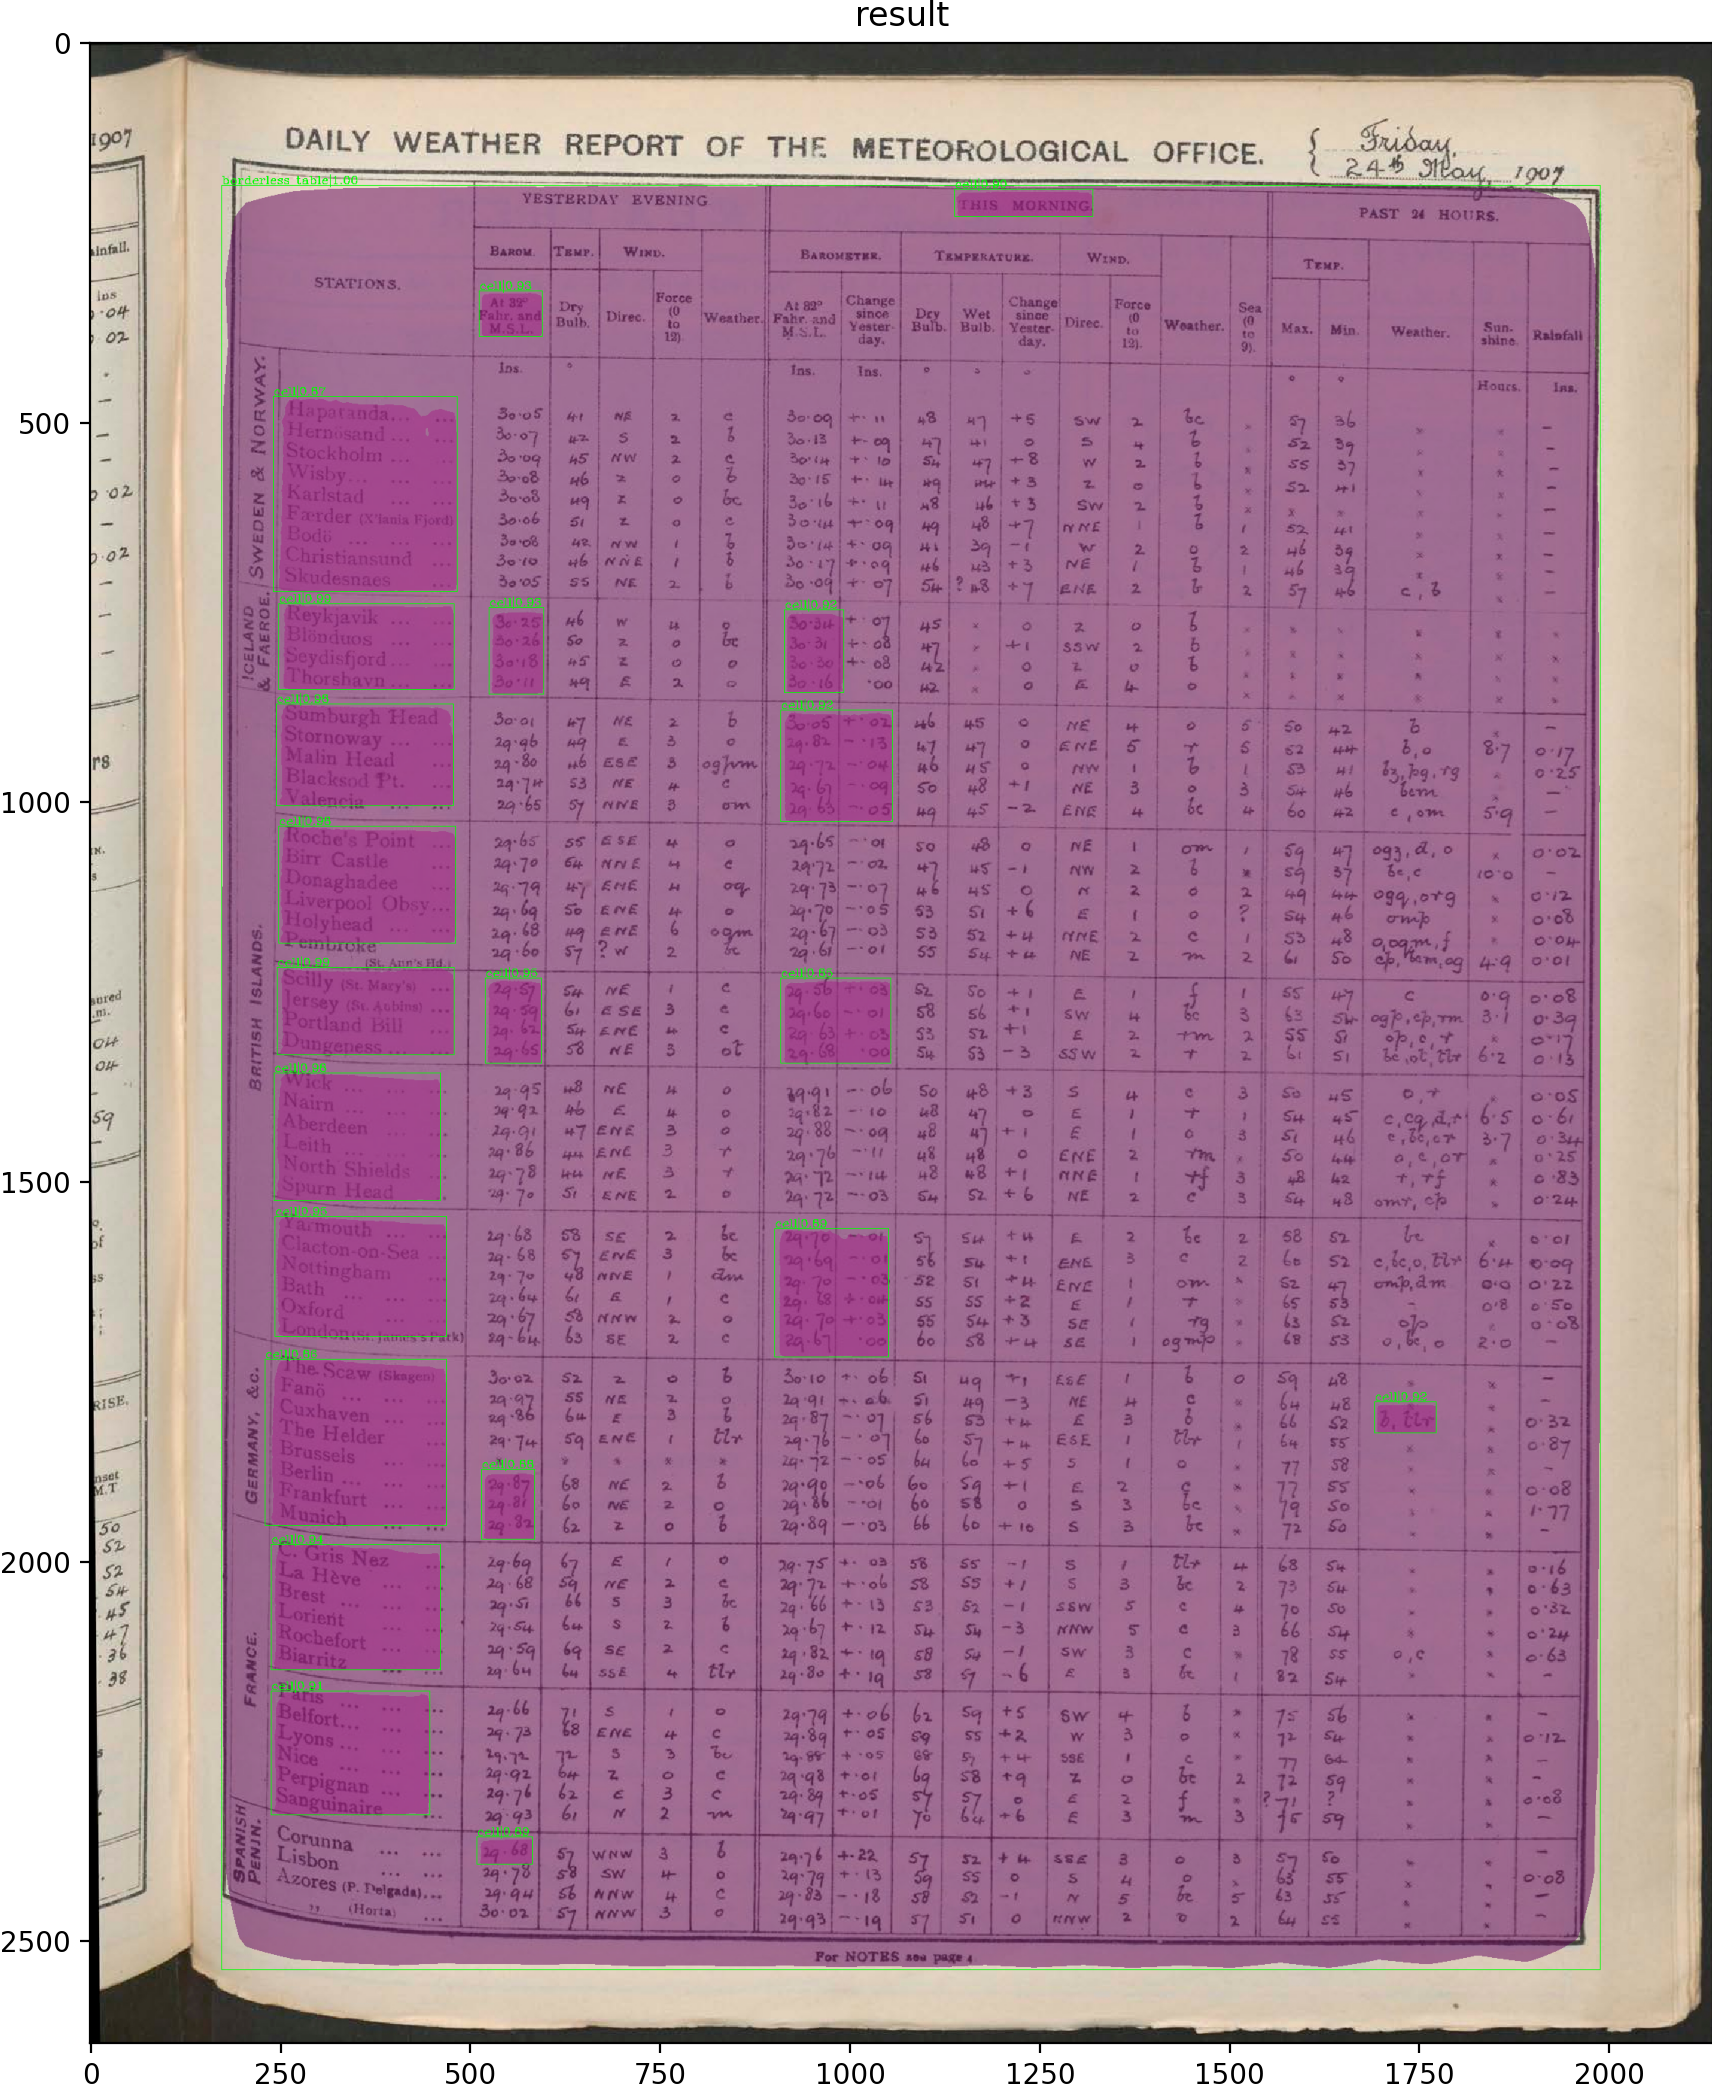 result
1907
DAILY WEATHER REPORT OF THE METEOROLOGICAL OFFICE.
Friday,
24th May, 1907
borderless table|1.00
YESTERDAY EVENING THIS MORNING. PAST 24 HOURS.
STATIONS.
BAROM. TEMP. WIND. BAROMETER. TEMPERATURE. WIND. TEMP.
At 32° Fahr. and M.S.L. Dry Bulb. Direc. Force (0 to 12). Weather. At 32° Fahr. and M.S.L. Change since Yesterday. Dry Bulb. Wet Bulb. Change since Yesterday. Direc. Force (0 to 12). Weather. Sea (0 to 9). Max. Min. Weather. Sunshine. Rainfall
Ins. ° Ins. Ins. ° ° ° ° ° Hours. Ins.
SWEDEN & NORWAY.
Haparanda... 30.05 41 NE 2 c 30.09 +.11 48 47 +5 SW 2 bc 57 36 –
Hernösand ... 30.07 42 S 2 b 30.13 +.09 47 41 0 S 4 b 52 39 –
Stockholm ... 30.09 45 NW 2 c 30.14 +.10 54 47 +8 W 2 b 55 37 –
Wisby... 30.08 46 Z 0 b 30.15 +.14 49 44 +3 Z 0 b 52 41 –
Karlstad 30.08 49 Z 0 bc 30.16 +.11 48 46 +3 SW 2 b
Færder (X'tania Fjord) 30.06 51 Z 0 c 30.14 +.09 49 48 +7 NNE 1 b 1 52 41 –
Bodö 30.08 42 NW 1 b 30.14 +.09 41 39 -1 W 2 o 2 46 39 –
Christiansund 30.10 46 NNE 1 b 30.17 +.09 46 43 +3 NE 1 b 1 46 39 –
Skudesnaes 30.05 55 NE 2 b 30.09 +.07 54 ?48 +7 ENE 2 b 2 57 46 c, b –
ICELAND & FAEROE.
Reykjavik ... 30.25 46 W 4 o 30.34 +.07 45 0 Z 0 b
Blönduos 30.26 50 Z 0 bc 30.31 +.08 47 +1 SSW 2 b
Seydisfjord ... 30.18 45 Z 0 o 30.30 +.08 42 0 Z 0 b
Thorshavn ... 30.11 49 E 2 o 30.16 .00 42 0 E 4 o
BRITISH ISLANDS.
Sumburgh Head 30.01 47 NE 2 b 30.05 +.02 46 45 0 NE 4 o 5 50 42 b –
Stornoway ... 29.96 49 E 3 o 29.82 -.13 47 47 0 ENE 5 r 5 52 44 b, o 8.7 0.17
Malin Head 29.80 46 ESE 3 29.72 -.04 46 45 0 NW 1 b 1 53 41 0.25
Blacksod Pt. 29.74 53 NE 4 c 29.67 -.09 50 48 +1 NE 3 o 3 54 46 bcm –
Valencia 29.65 57 NNE 3 om 29.63 -.05 49 45 -2 ENE 4 bc 4 60 42 c, om 5.9 –
Roche's Point 29.65 55 ESE 4 o 29.65 -.01 50 48 0 NE 1 om 1 59 47 0.02
Birr Castle 29.70 64 NNE 4 c 29.72 -.02 47 45 -1 NW 2 b 59 37 bc, c 10.0 –
Donaghadee 29.79 47 ENE 4 oq 29.73 -.07 46 45 0 N 2 o 2 49 44 0.12
Liverpool Obsy... 29.69 50 ENE 4 o 29.70 -.05 53 51 +6 E 1 o ? 54 46 omp 0.08
Holyhead 29.68 49 ENE 6 oqm 29.67 -.03 53 52 +4 NNE 2 c 1 53 48 0.04
Pembroke (St. Ann's Hd.) 29.60 57 ? W 2 bc 29.61 -.01 55 54 +4 NE 2 m 2 61 50 4.9 0.01
Scilly (St. Mary's) 29.57 54 NE 1 c 29.56 +.03 52 50 +1 E 1 f 1 55 47 c 0.9 0.08
Jersey (St. Aubins) 29.59 61 ESE 3 c 29.60 -.01 58 56 +1 SW 4 bc 3 63 54 3.1 0.39
Portland Bill 29.62 54 ENE 4 c 29.63 +.03 53 52 +1 E 2 rm 2 55 51 op, c, r 0.17
Dungeness ... 29.65 58 NE 3 ot 29.68 .00 54 53 -3 SSW 2 r 2 61 51 6.2 0.13
Wick ... 29.95 48 NE 4 o 29.91 -.06 50 48 +3 S 4 c 3 50 45 o, r 0.05
Nairn ... 29.92 46 E 4 o 29.82 -.10 48 47 0 E 1 r 1 54 45 6.5 0.61
Aberdeen 29.91 47 ENE 3 o 29.88 -.09 48 47 +1 E 1 o 3 51 46 c, bc, or 3.7 0.34
Leith ... 29.86 44 ENE 3 r 29.76 -.11 48 48 0 ENE 2 rm 50 44 o, c, or 0.25
North Shields 29.78 44 NE 3 r 29.72 -.14 48 48 +1 NNE 1 rf 3 48 42 r, rf 0.83
Spurn Head 29.70 51 ENE 2 o 29.72 -.03 54 52 +6 NE 2 c 3 54 48 omr, cp 0.24
Yarmouth 29.68 58 SE 2 bc 29.70 -.01 57 54 +4 E 2 bc 2 58 52 bc 0.01
Clacton-on-Sea 29.68 57 ENE 3 bc 29.69 -.01 56 54 +1 ENE 3 c 2 60 52 c, bc, o, tlr 6.4 0.09
Nottingham 29.70 48 NNE 1 dm 29.70 -.03 52 51 +4 ENE 1 om 52 47 omp, dm 0.0 0.22
Bath 29.64 61 E 1 c 29.68 +.04 55 55 +2 E 1 r 65 53 – 0.8 0.50
Oxford 29.67 58 NNW 2 o 29.70 +.03 55 54 +3 SE 1 rg 63 52 op 0.08
London (St. James's Park) 29.64 63 SE 2 c 29.67 .00 60 58 +4 SE 1 ogmp 68 53 o, bc, o 2.0 –
GERMANY, &c.
The Scaw (Skagen) 30.02 52 Z 0 b 30.10 +.06 51 49 +1 ESE 1 b 0 59 48 –
Fanö 29.97 55 NE 2 o 29.91 51 49 -3 NE 4 c 64 48 –
Cuxhaven 29.86 64 E 3 b 29.87 -.07 56 53 +4 E 3 b 66 52 b, tlr 0.32
The Helder 29.74 59 ENE 1 tlr 29.76 -.07 60 57 +4 ESE 1 tlr 1 64 55 0.87
Brussels 29.72 -.05 64 60 +5 S 1 o 77 58 –
Berlin ... 29.87 68 NE 2 b 29.90 -.06 60 59 +1 E 2 c 77 55 0.08
Frankfurt 29.81 60 NE 2 o 29.86 -.01 60 58 0 S 3 bc 79 50 1.77
Munich 29.82 62 Z 0 b 29.89 -.03 66 60 +10 S 3 bc 72 50 –
FRANCE.
C. Gris Nez 29.69 67 E 1 o 29.75 +.03 58 55 -1 S 1 tlr 4 68 54 0.16
La Hève 29.68 59 NE 2 c 29.72 +.06 58 55 +1 S 3 bc 2 73 54 0.63
Brest 29.51 66 S 3 bc 29.66 +.13 53 52 -1 SSW 5 c 4 70 50 0.32
Lorient 29.54 64 S 2 b 29.67 +.12 54 54 -3 NNW 5 c 3 66 54 0.24
Rochefort 29.59 69 SE 2 c 29.82 +.19 58 54 -1 SW 3 c 78 55 o, c 0.63
Biarritz 29.64 64 SSE 4 tlr 29.80 +.19 58 57 -6 E 3 bc 1 82 54 –
Paris 29.66 71 S 1 o 29.79 +.06 62 59 +5 SW 4 b 75 56 –
Belfort... 29.73 68 ENE 4 c 29.89 +.05 59 55 +2 W 3 o 72 54 0.12
Lyons ... 29.72 72 S 3 bc 29.88 +.05 68 57 +4 SSE 1 c 77 64 –
Nice 29.92 64 Z 0 c 29.98 +.01 69 58 +9 Z 0 bc 2 72 59 –
Perpignan ... 29.76 62 E 3 c 29.89 +.05 57 57 0 E 2 f ?71 ? 0.08
Sanguinaire 29.93 61 N 2 m 29.97 +.01 70 64 +6 E 3 m 3 75 59 –
SPANISH PENIN.
Corunna ... ... 29.68 57 WNW 3 b 29.76 +.22 57 52 +4 SSE 3 o 3 57 50 –
Lisbon ... ... 29.78 58 SW 4 o 29.79 +.13 59 55 0 S 4 o 63 55 0.08
Azores (P. Delgada)... 29.94 56 NNW 4 c 29.83 -.18 58 52 -1 N 5 bc 5 63 55 –
" (Horta) ... 30.02 57 NNW 3 o 29.93 -.19 57 51 0 NNW 2 o 2 64 55 –
For NOTES see page 4
0
500
1000
1500
2000
2500
0 250 500 750 1000 1250 1500 1750 2000